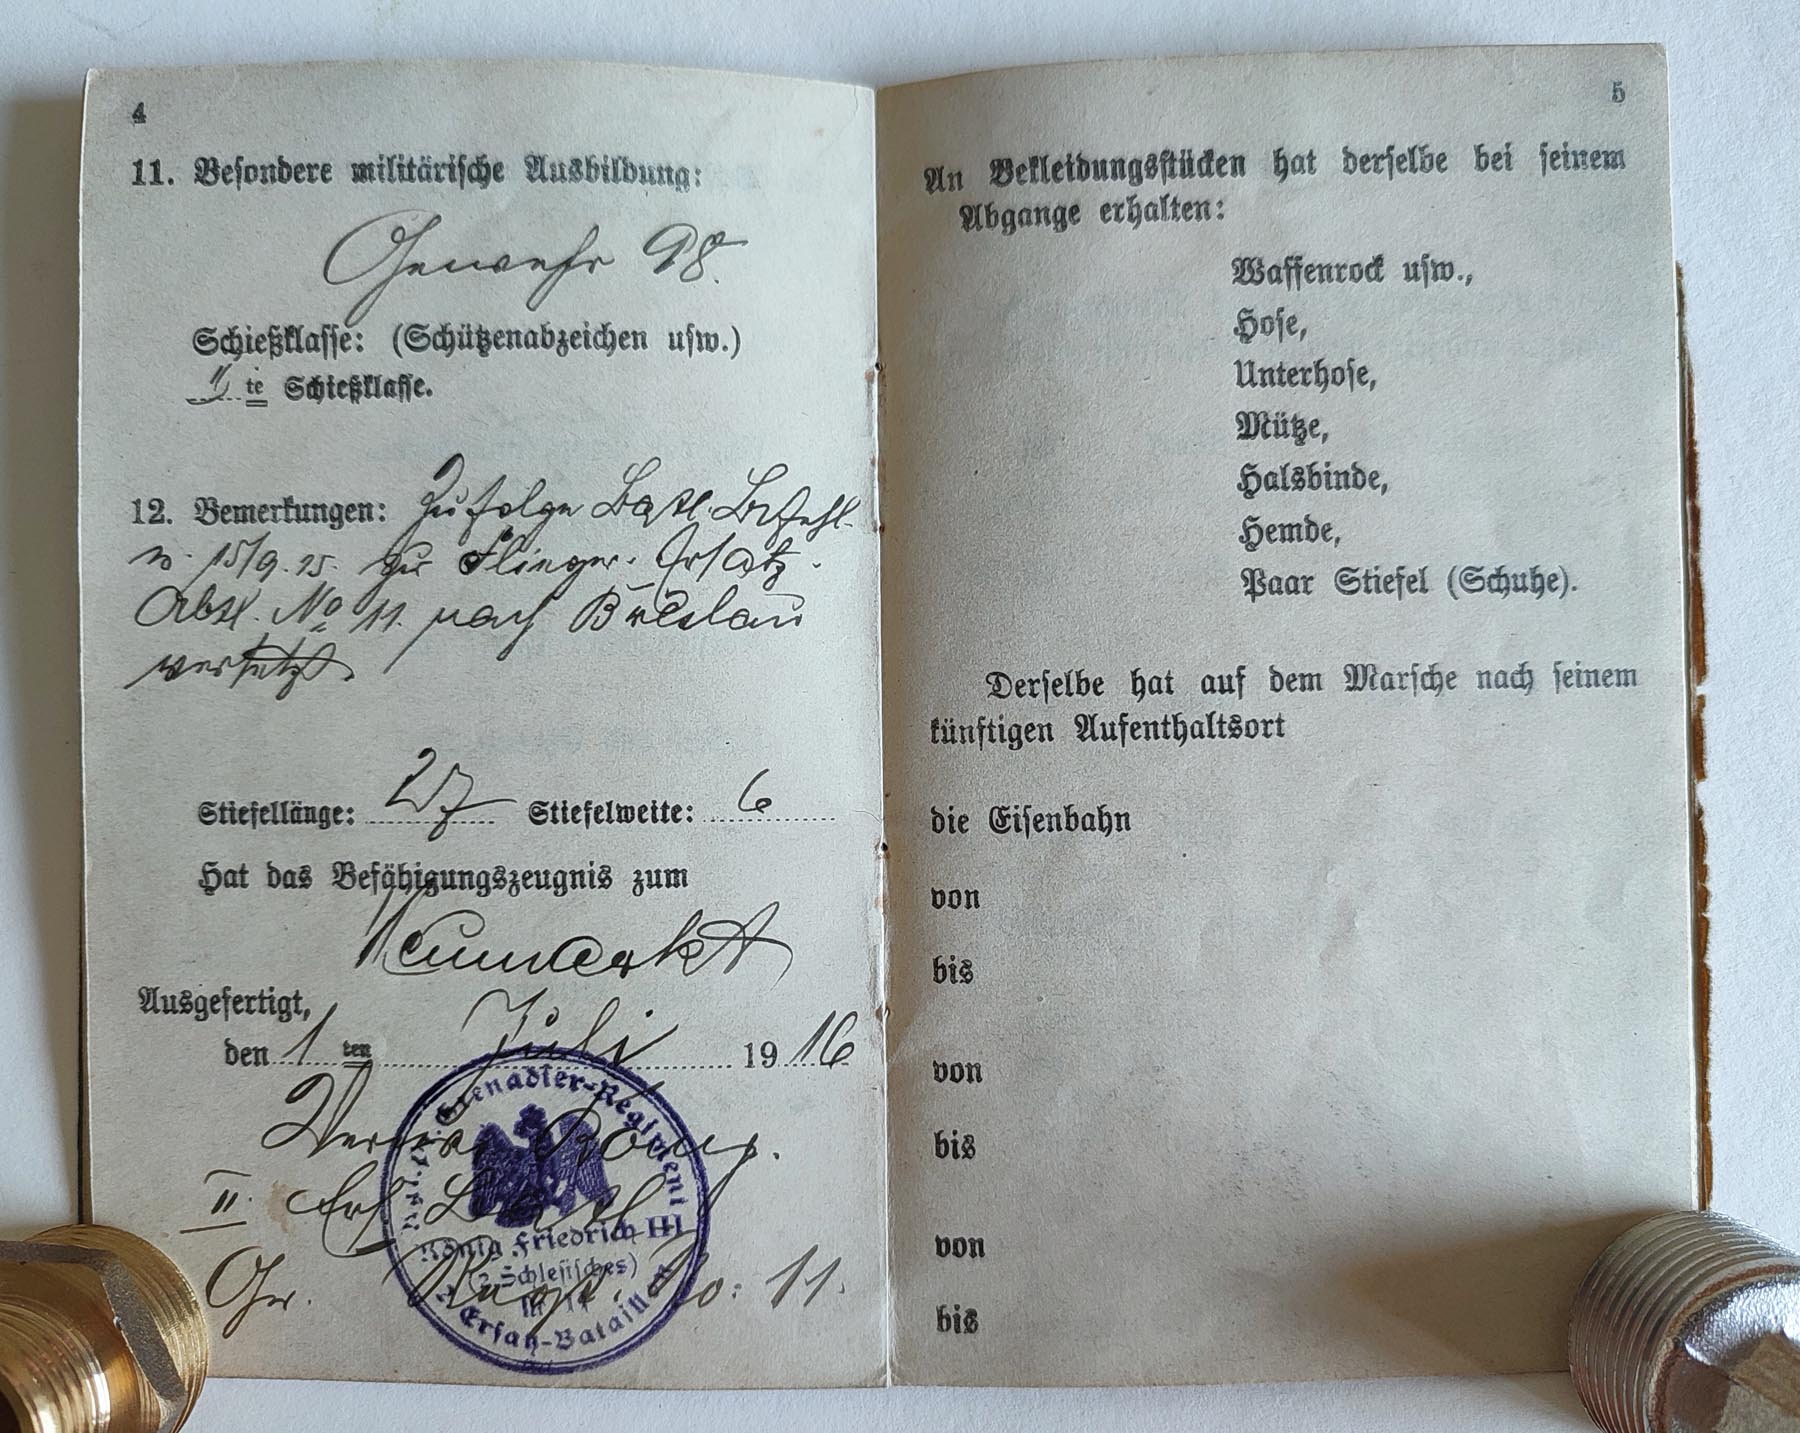 4
11. Besondere militärische Ausbildung:
Gewehr 98.
Schießklasse: (Schützenabzeichen usw.)
te Schießklasse.
12. Bemerkungen: Zufolge Batl. Befehl
v. 15/9. 15. zu Flieger. Ersatz.
Abtl. No 11. nach Breslau
versetzt.
Stiefellänge: 27 Stiefelweite: 6
Hat das Befähigungszeugnis zum
Neumarkt
Ausgefertigt,
den 1 ten Juli 1916
II. Ers. Batl.
Gr. Regt. No: 11.
Grenadier-Regiment
König Friedrich III
(2. Schlesisches)
Nr. 11
Ersatz-Bataillon
5
An Bekleidungsstücken hat derselbe bei seinem
Abgange erhalten:
Waffenrock usw.,
Hose,
Unterhose,
Mütze,
Halsbinde,
Hemde,
Paar Stiefel (Schuhe).
Derselbe hat auf dem Marsche nach seinem
künftigen Aufenthaltsort
die Eisenbahn
von
bis
von
bis
von
bis